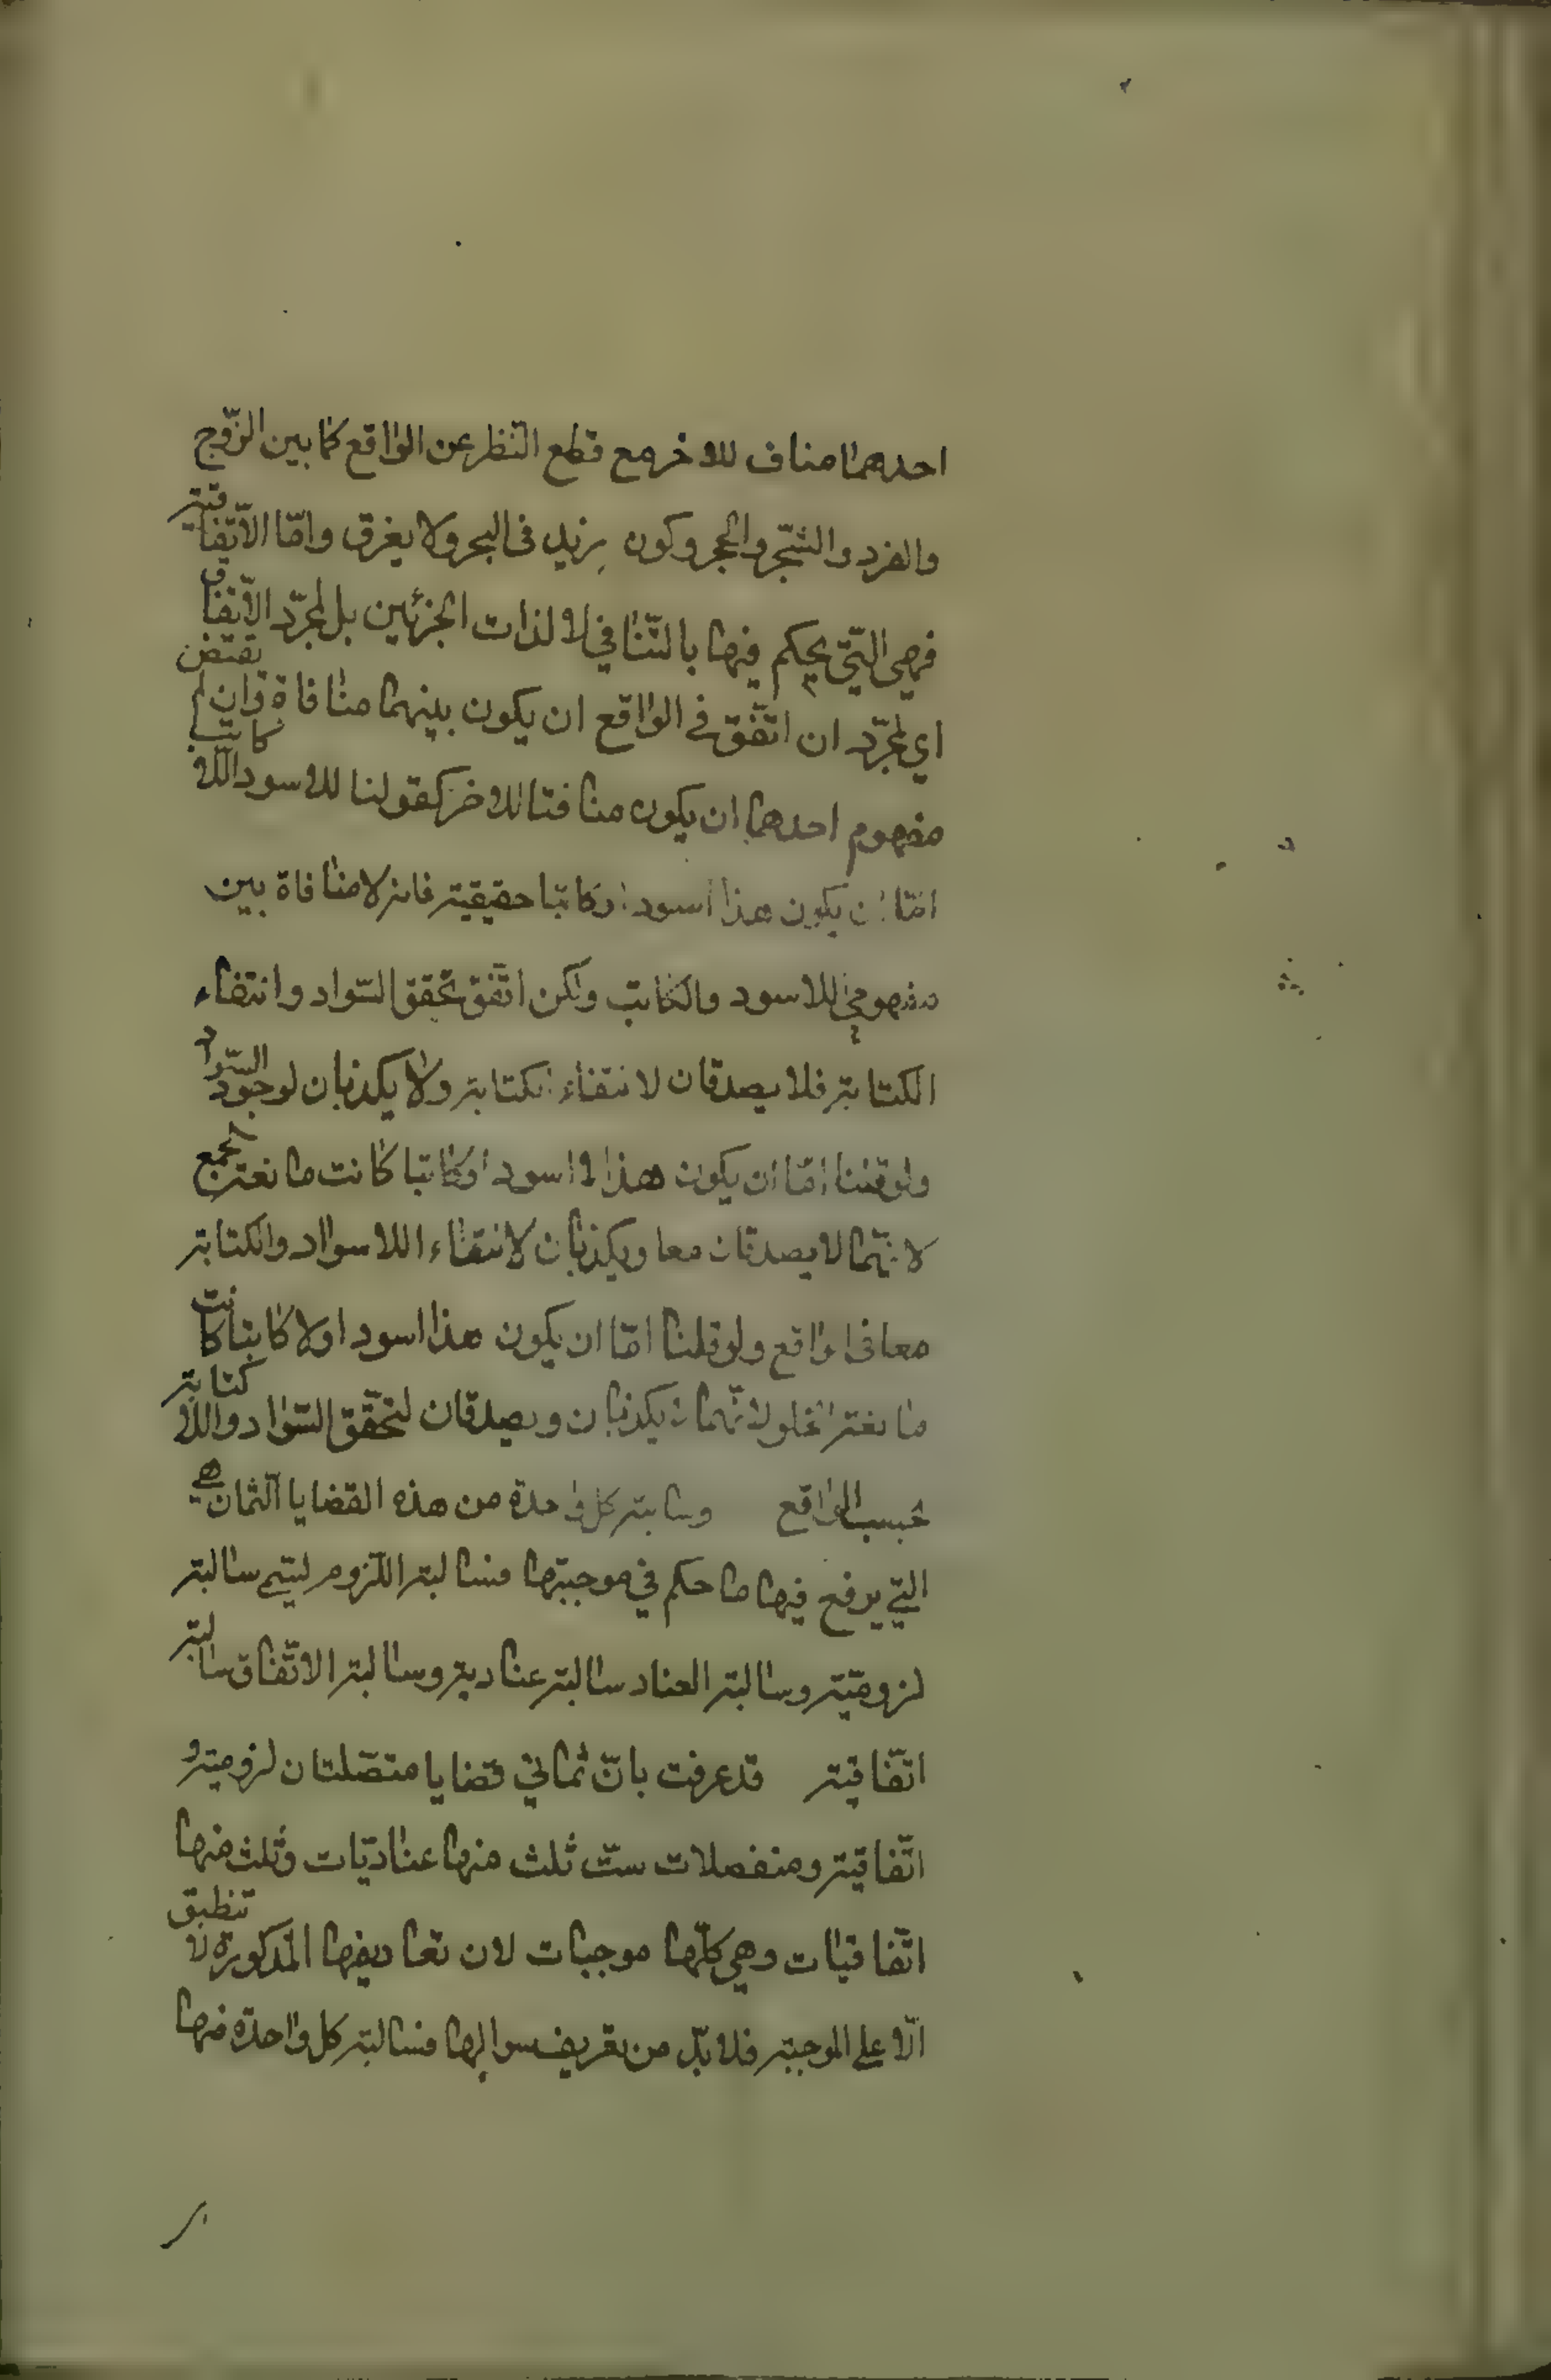 احدهما مناف للاخر مع قطع النظر عن الواقع كما بين الزّوج
والفرد والشّجر والحجر وكون زيد فى البحر ولا يغرق وامّا الاتّفاقية
فهي الّتي يحكم فيها بالتّنافي لا لذات الجزئين بل لمجرّد الاتّفاق
اي لمجرّد ان اتّفق في الواقع ان يكون بينهما منافاة وان لم تقتض
مفهوم احدهما ان يكون منافتا للاخر كقولنا للاسود اللا كاتب
امّا ان يكون هذا اسود او كاتبا حقيقية فانه لا منافاة بين
مفهومي للاسود والكاتب ولكن اتّفق تحقق السّواد وانتفاء
الكتابة فلا يصدقان لانتفاء الكتابة ولا يكذبان لوجود السّواد
ولو قلنا امّا ان يكون هذا لا اسود او كاتبا كانت مانعة الجمع
لانّهما لا يصدقان معا ويكذبان لانتفاء اللا سواد والكتابة
معا فى الواقع ولو قلنا امّا ان يكون هذا اسود او لا كاتبا كانت
مانعة الخلو لانّهما لا يكذبان ويصدقان لتحقّق السّواد واللا كتابة
بحسب الواقع وسالبة كل واحدة من هذه القضايا الثمان هي
التي يرفع فيها ما حكم في موجبتها فسالبة اللّزوم ليتم سالبة
لزوميّة وسالبة العناد سالبة عنادية وسالبة الاتّفاق سالبة
اتّفاقية قد عرفت بانّ ثماني قضايا متصّلتان لزومية و
اتّفاقية ومنفصلات ستّ ثلث منها عناديّات وثلث منها
اتّفاقيات وهي كلّها موجبات لان تعاريفها المذكورة لا تنطبق
الّا على الموجبة فلا بدّ من تعريف سوالبها فسالبة كل واحدة منها